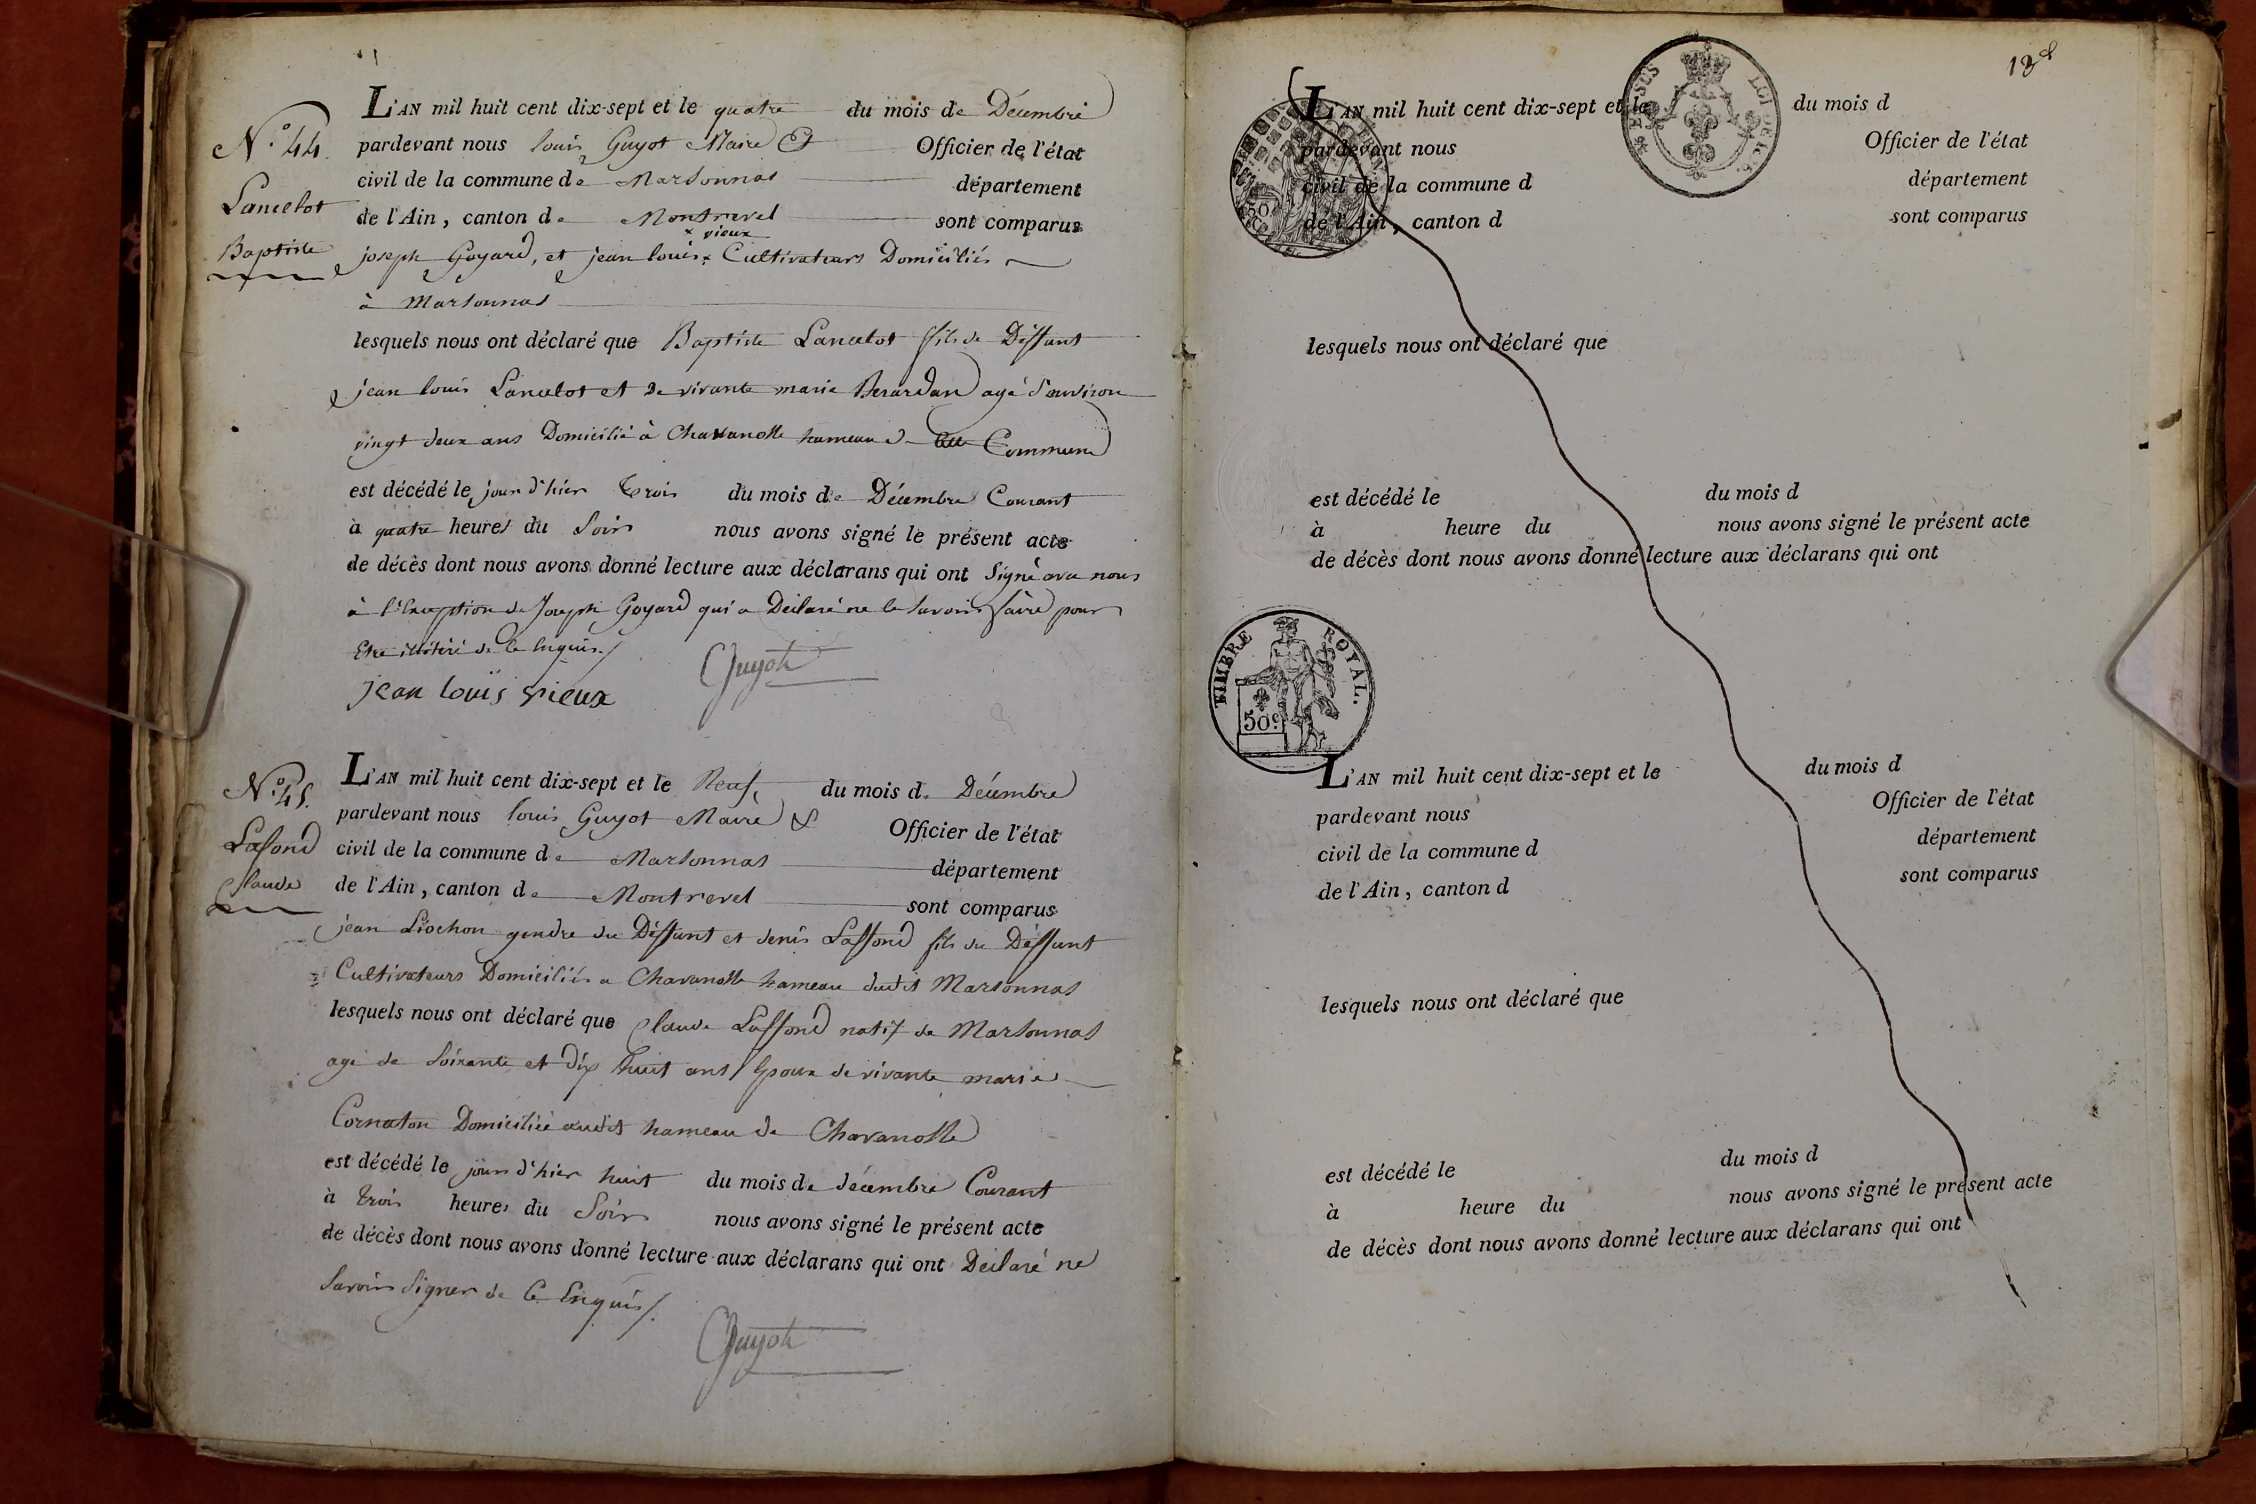 N.º 44.
Lancelot
Baptiste
L'AN mil huit cent dix-sept et le quatre du mois de Décembre
pardevant nous louis Guyot Maire & Officier de l'état
civil de la commune de Marsonnas département
de l'Ain, canton de Montrevel sont comparus
x vieux
joseph Goyard, et jean louis x Cultivateurs Domiciliés
à Marsonnas
lesquels nous ont déclaré que Baptiste Lancelot fils de Deffunt
jean louis Lancelot et de vivante marie Berardan agé d'environ
vingt deux ans Domicilié à Chavanolle hameau de Commune
est décédé le jour d'hier trois du mois de Décembre Courant
à quatre heures du Soir nous avons signé le présent acte
de décès dont nous avons donné lecture aux déclarans qui ont Signé avec nous
à l'Exception de Joseph Goyard qui a Déclaré ne le Savoir faire pour
Etre illitéré de ce Enquis /
jean louis vieux
Guyot
N.º 45.
Lafond
Claude
L'AN mil huit cent dix-sept et le Neuf du mois de Décembre
pardevant nous louis Guyot Maire & Officier de l'état
civil de la commune de Marsonnas département
de l'Ain, canton de Montrevel sont comparus
jean Liochon gendre du Deffunt et denis Laffond fils du Deffunt
Cultivateurs Domiciliés a Chavanolle hameau dudit Marsonnas
lesquels nous ont déclaré que Claude Laffond natif de Marsonnas
agé de Soixante et Dix huit ans Epoux de vivante marie
Cornaton Domiciliée audit hameau de Chavanolle
est décédé le jour d'hier huit du mois de décembre Courant
à trois heures du Soir nous avons signé le présent acte
de décès dont nous avons donné lecture aux déclarans qui ont Déclaré ne
Savoir Signer de Ce Enquis /.
Guyot
L'AN mil huit cent dix-sept et le du mois d
pardevant nous Officier de l'état
civil de la commune d département
de l'Ain, canton d sont comparus
lesquels nous ont déclaré que
est décédé le du mois d
à heure du nous avons signé le présent acte
de décès dont nous avons donné lecture aux déclarans qui ont
TIMBRE ROYAL.
50c
L'AN mil huit cent dix-sept et le du mois d
pardevant nous Officier de l'état
civil de la commune d département
de l'Ain, canton d sont comparus
lesquels nous ont déclaré que
est décédé le du mois d
à heure du nous avons signé le présent acte
de décès dont nous avons donné lecture aux déclarans qui ont